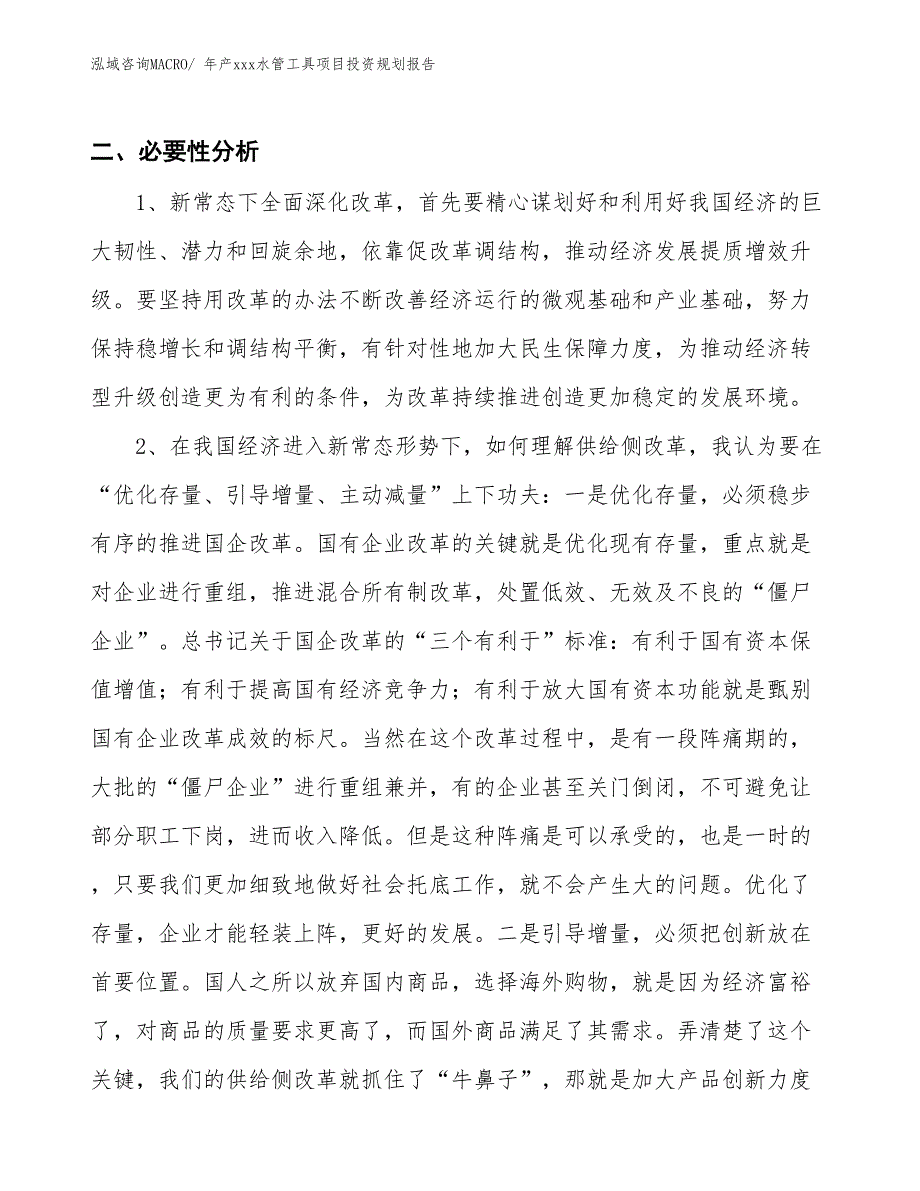 泓域咨询MACRO/ 年产xxx水管工具项目投资规划报告
二、必要性分析
1、新常态下全面深化改革，首先要精心谋划好和利用好我国经济的巨
大韧性、潜力和回旋余地，依靠促改革调结构，推动经济发展提质增效升
级。要坚持用改革的办法不断改善经济运行的微观基础和产业基础，努力
保持稳增长和调结构平衡，有针对性地加大民生保障力度，为推动经济转
型升级创造更为有利的条件，为改革持续推进创造更加稳定的发展环境。
2、在我国经济进入新常态形势下，如何理解供给侧改革，我认为要在
“优化存量、引导增量、主动减量”上下功夫：一是优化存量，必须稳步
有序的推进国企改革。国有企业改革的关键就是优化现有存量，重点就是
对企业进行重组，推进混合所有制改革，处置低效、无效及不良的“僵尸
企业”。总书记关于国企改革的“三个有利于”标准：有利于国有资本保
值增值；有利于提高国有经济竞争力；有利于放大国有资本功能就是甄别
国有企业改革成效的标尺。当然在这个改革过程中，是有一段阵痛期的，
大批的“僵尸企业”进行重组兼并，有的企业甚至关门倒闭，不可避免让
部分职工下岗，进而收入降低。但是这种阵痛是可以承受的，也是一时的
，只要我们更加细致地做好社会托底工作，就不会产生大的问题。优化了
存量，企业才能轻装上阵，更好的发展。二是引导增量，必须把创新放在
首要位置。国人之所以放弃国内商品，选择海外购物，就是因为经济富裕
了，对商品的质量要求更高了，而国外商品满足了其需求。弄清楚了这个
关键，我们的供给侧改革就抓住了“牛鼻子”，那就是加大产品创新力度